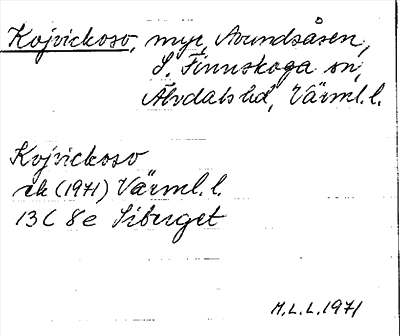 Kojvickoso, myr, Avundsåsen,
S. Finnskoga sn,
Älvdals hd, Värml. l.
Kojvickoso
ek (1971) Värml. l.
13C 8e Siberget
M.L.L. 1971